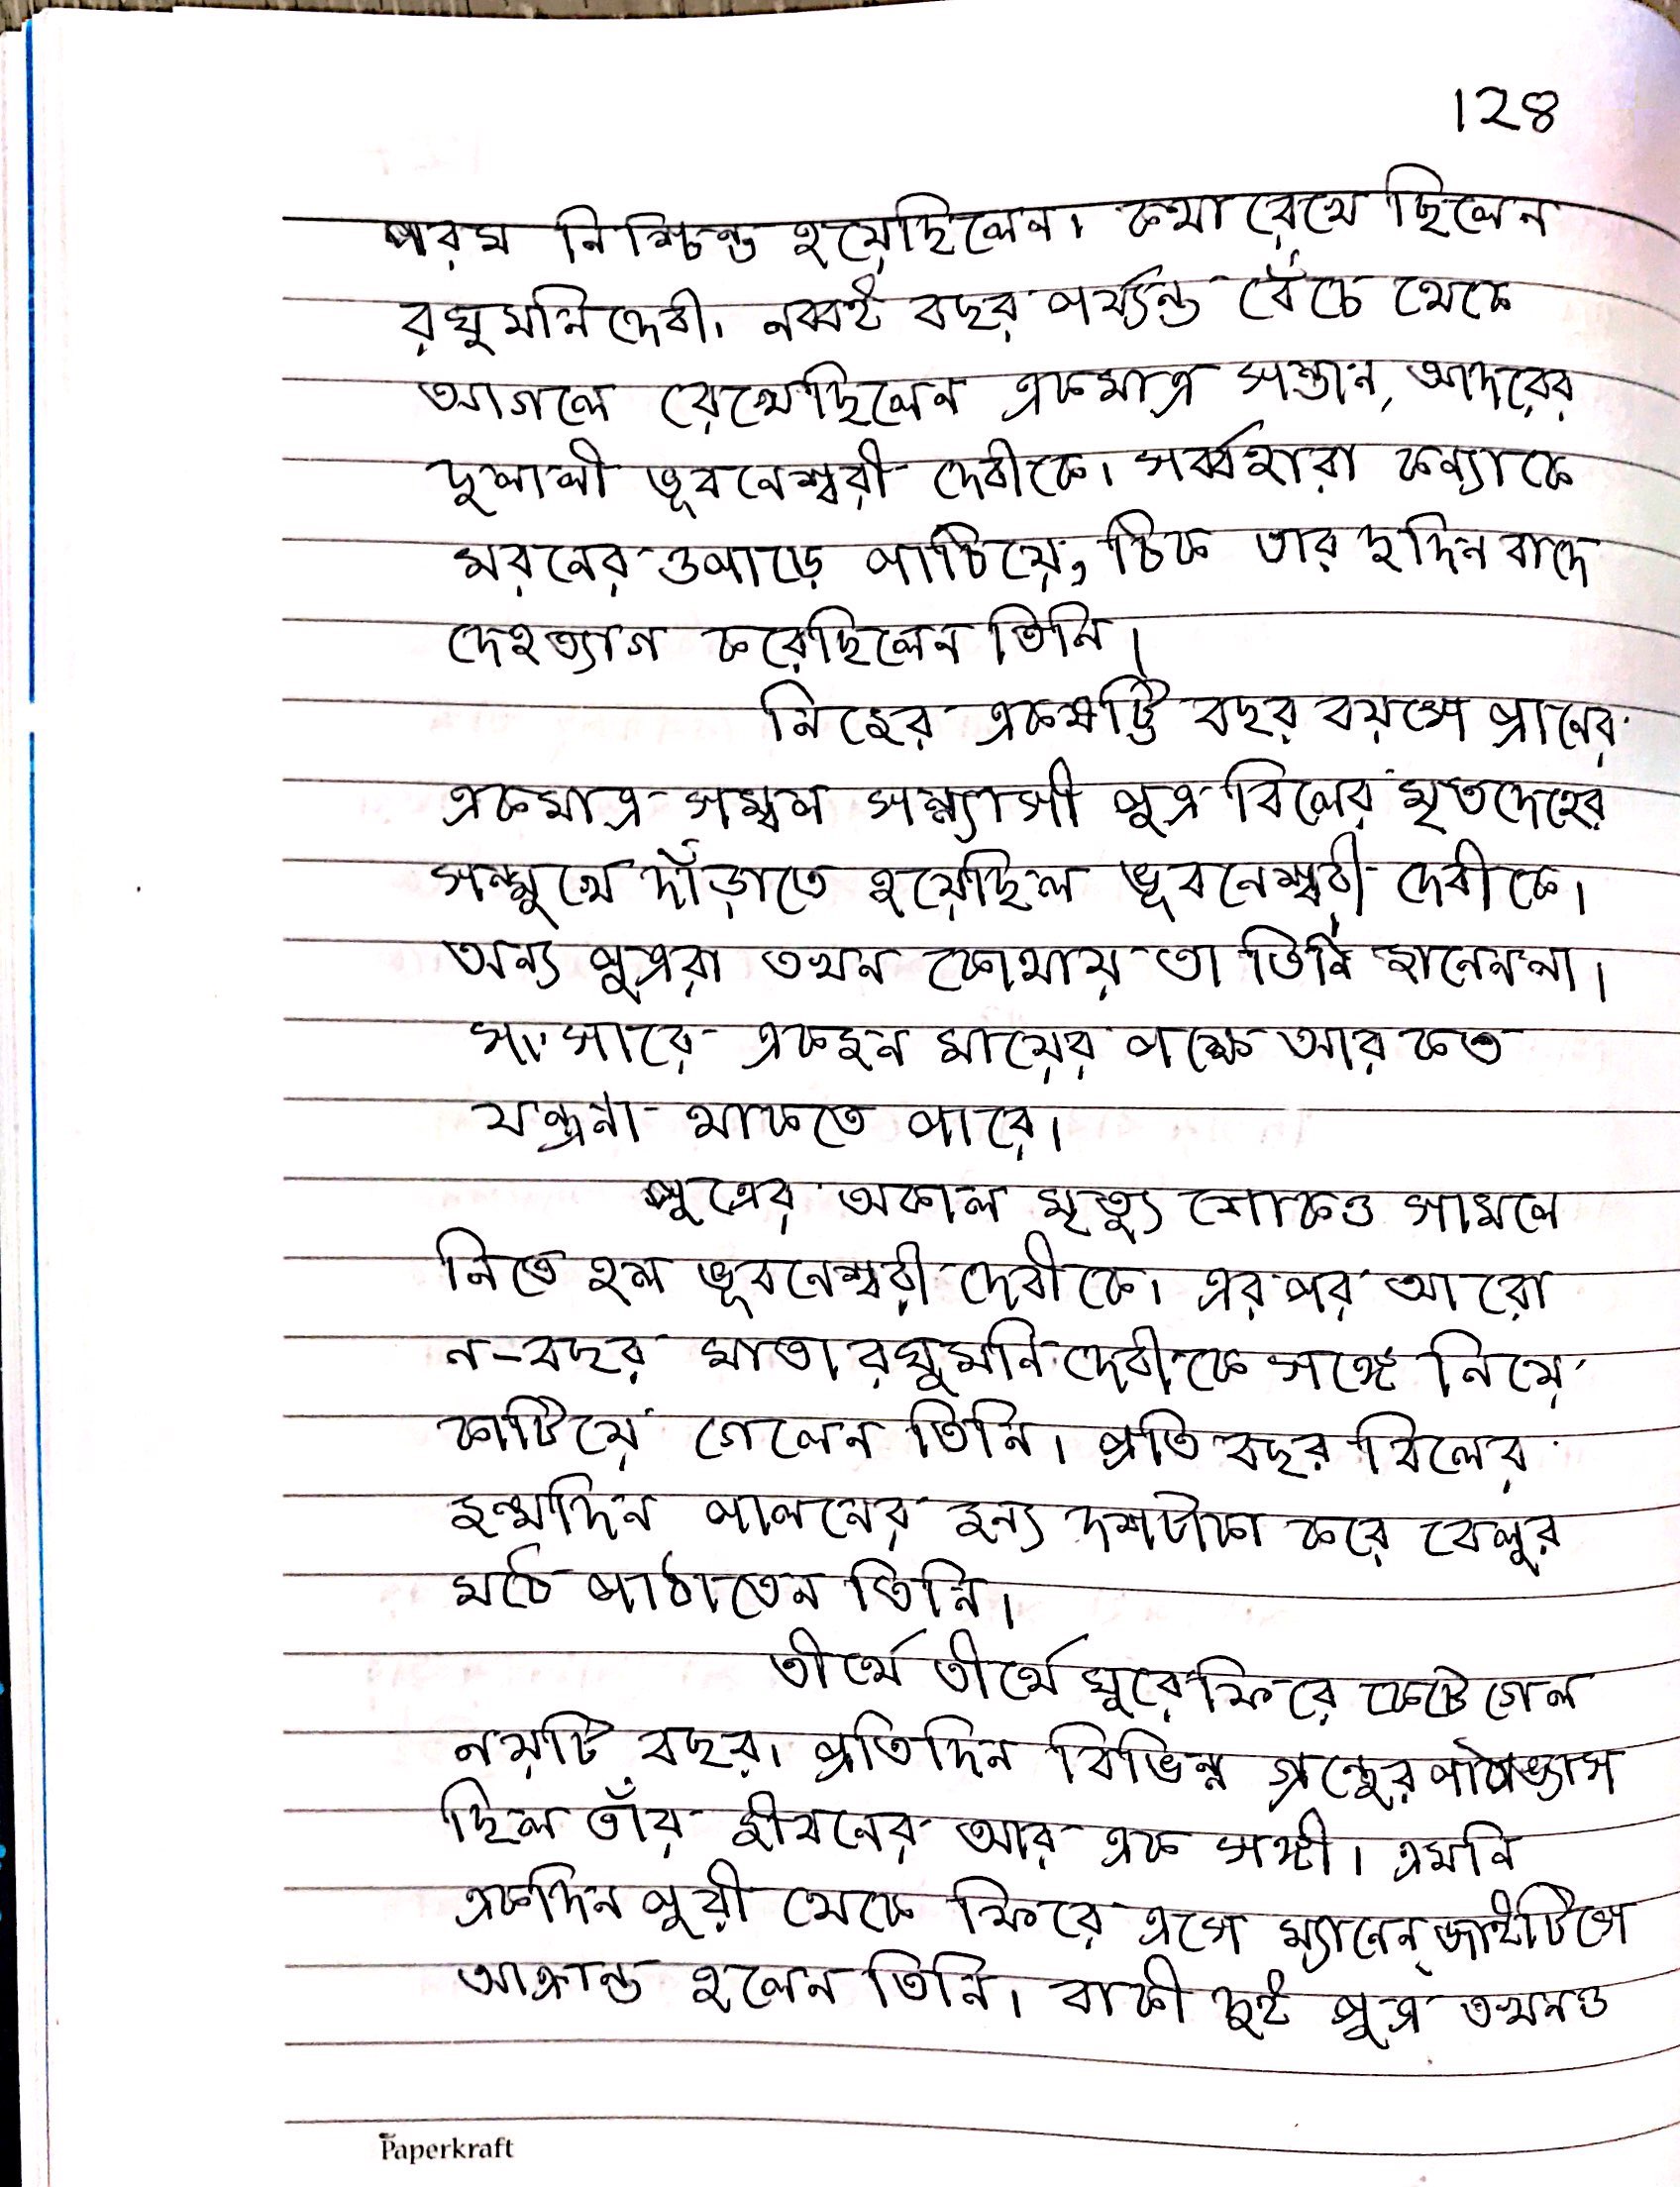 128
পরম নিশ্চিন্ত হয়েছিলেন। কথা রেখে ছিলেন
রঘুমনি দেবী। নব্বই বছর পর্য্যন্ত বেঁচে থেকে
আগলে রেখেছিলেন একমাত্র সন্তান, আদরের
দুলালী ভূবনেশ্বরী দেবীকে। সর্ব্বহারা কন্যাকে
মরনের ওপাড়ে পাঠিয়ে, ঠিক তার দুদিন বাদে
দেহত্যাগ করেছিলেন তিনি।
নিজের একষট্টি বছর বয়সে প্রানের
একমাত্র সম্বল সন্ন্যাসী পুত্র বিলের মৃতদেহের
সন্মুখে দাঁড়াতে হয়েছিল ভূবনেশ্বরী দেবীকে।
অন্য পুত্ররা তখন কোথায় তা তিনি জানেননা।
সংসারে একজন মায়ের পক্ষে আর কত
যন্ত্রনা থাকতে পারে।
পুত্রের অকাল মৃত্যু শোকও সামলে
নিতে হল ভূবনেশ্বরী দেবীকে। এরপর আরো
ন-বছর মাতা রঘুমনি দেবীকে সঙ্গে নিয়ে
কাটিয়ে গেলেন তিনি। প্রতি বছর বিলের
জন্মদিন পালনের জন্য দশটাকা করে বেলুর
মঠে পাঠাতেন তিনি।
তীর্থে তীর্থে ঘুরেফিরে কেটে গেল
নয়টি বছর। প্রতিদিন বিভিন্ন গ্রন্থের পাঠাভ্যাস
ছিল তাঁর জীবনের আর এক সঙ্গী। এমনি
একদিন পুরী থেকে ফিরে এসে ম্যানেন্জাইটিসে
আক্রান্ত হলেন তিনি। বাকী দুই পুত্র তখনও
Paperkraft